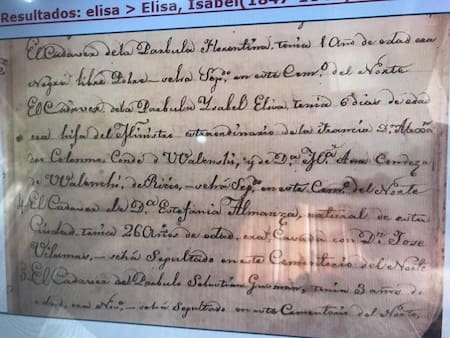 Resultados: elisa > Elisa, Isabel(1847
El Cadaver dela Parbula Florentina, tenia 1 Año de edad era
Negra libre Pobre – veha Sepº. en este Cemº. del Norte
El Cadaver dela Parbula Ysabel Elisa, tenia 6 dias de edad
era hija del Ministro extraordinario de la Francia Dn.
Colonna Conde de Walenski, y de Dª. Mª. Ana Condeza
de Walenki, de – vehá Sepº. en este Cemº. del Norte
El Cadaver de Dª. Estefania Almanza, natural de esta
Ciudad, tenia 26 Años de edad, era Casada con Dn. Jose
Vilamas, – vehá Sepultado en este Cementerio del Norte
El Cadaver del Parbulo Sebastian Gusman, tenia 3 años de
edad, era – vehá Sepultado en este Cementerio del Norte,